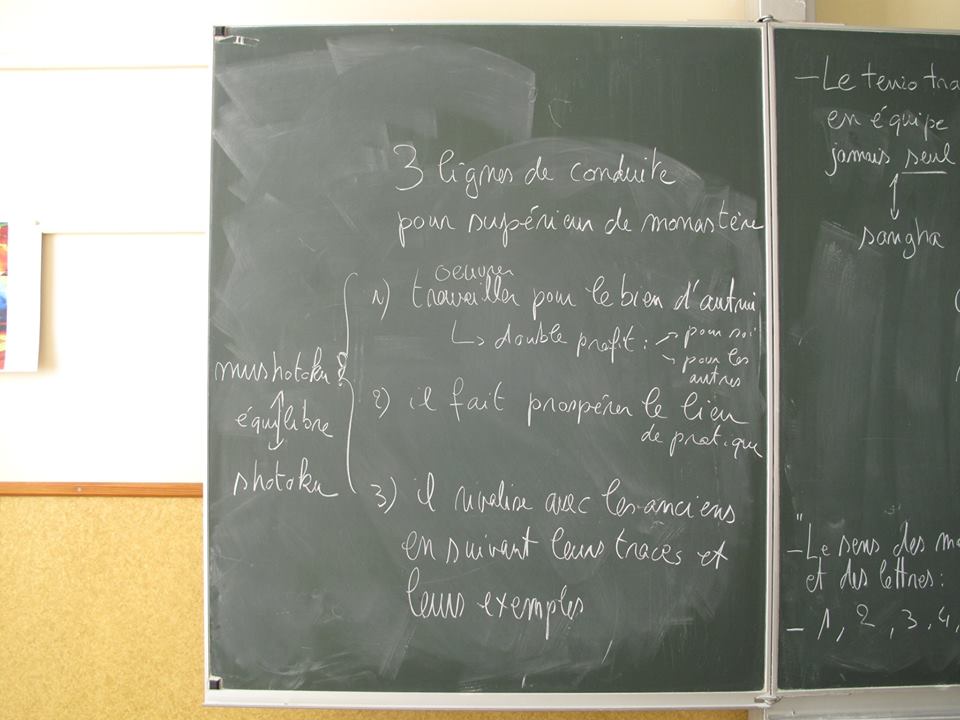 3 lignes de conduite
pour supérieur de monastère
oeuvrer
1) travailler pour le bien d'autrui
↳ double profit : → pour soi
→ pour les
autres
2) il fait prospérer le lieu
de pratique
3) il rivalise avec les anciens
en suivant leurs traces et
leurs exemples
mushotoku
équilibre
shotoku
- Le tenzo tra
en équipe
jamais seul
↕
sangha
"
- Le sens des mo
et des lettres :
- 1, 2, 3, 4,